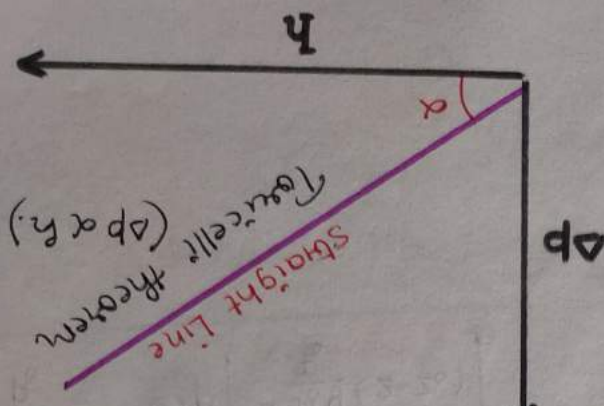 straight Line
Δp
Toricelli theorem
(Δp ∝ h.)
α
h